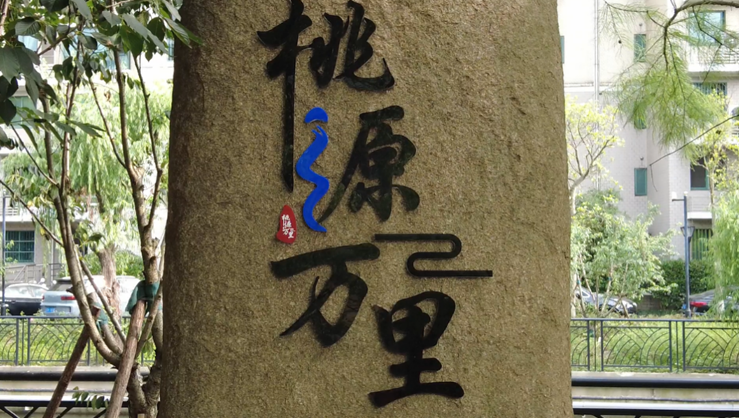 桃源万里